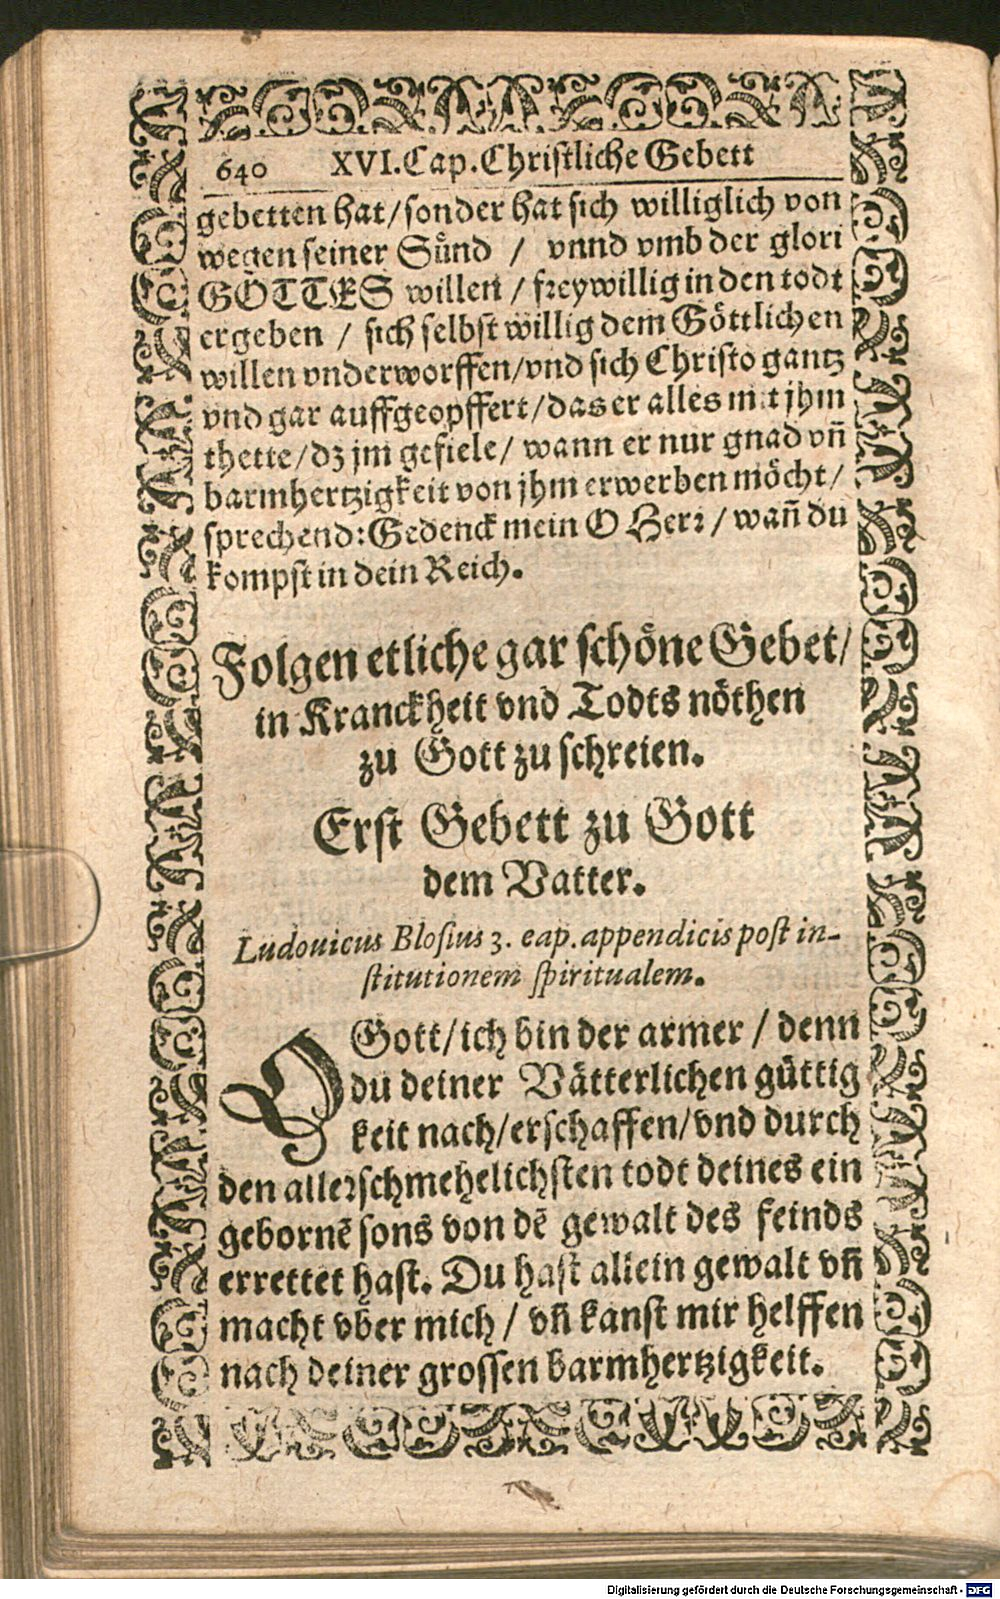 640 XVI. Cap. Christliche Gebett
gebetten hat/sonder hat sich williglich von
wegen seiner Sünd / vnnd vmb der glori
GOTTES willen / freywillig in den todt
ergeben / sich selbst willig dem Göttlichen
willen vnderworffen/vnd sich Christo gantz
vnd gar auffgeopffert/das er alles mit jhm
thette/dz jm gefiele/ wann er nur gnad vn̄
barmhertzigkeit von jhm erwerben möcht/
sprechend: Gedenck mein O Herr / wan̄ du
kompst in dein Reich.
Folgen etliche gar schöne Gebet/
in Kranckheit vnd Todts nöthen
zu Gott zu schreien.
Erst Gebett zu Gott
dem Vatter.
Ludouicus Blosius 3. cap. appendicis post in-
stitutionem spiritualem.
O Gott/ich bin der armer / denn
du deiner Vätterlichen güttig
keit nach/erschaffen/vnd durch
den allerschmehelichsten todt deines ein
gebornē sons von dē gewalt des feinds
errettet hast. Du hast allein gewalt vn̄
macht vber mich / vn̄ kanst mir helffen
nach deiner grossen barmhertzigkeit.
Digitalisierung gefördert durch die Deutsche Forschungsgemeinschaft - DFG